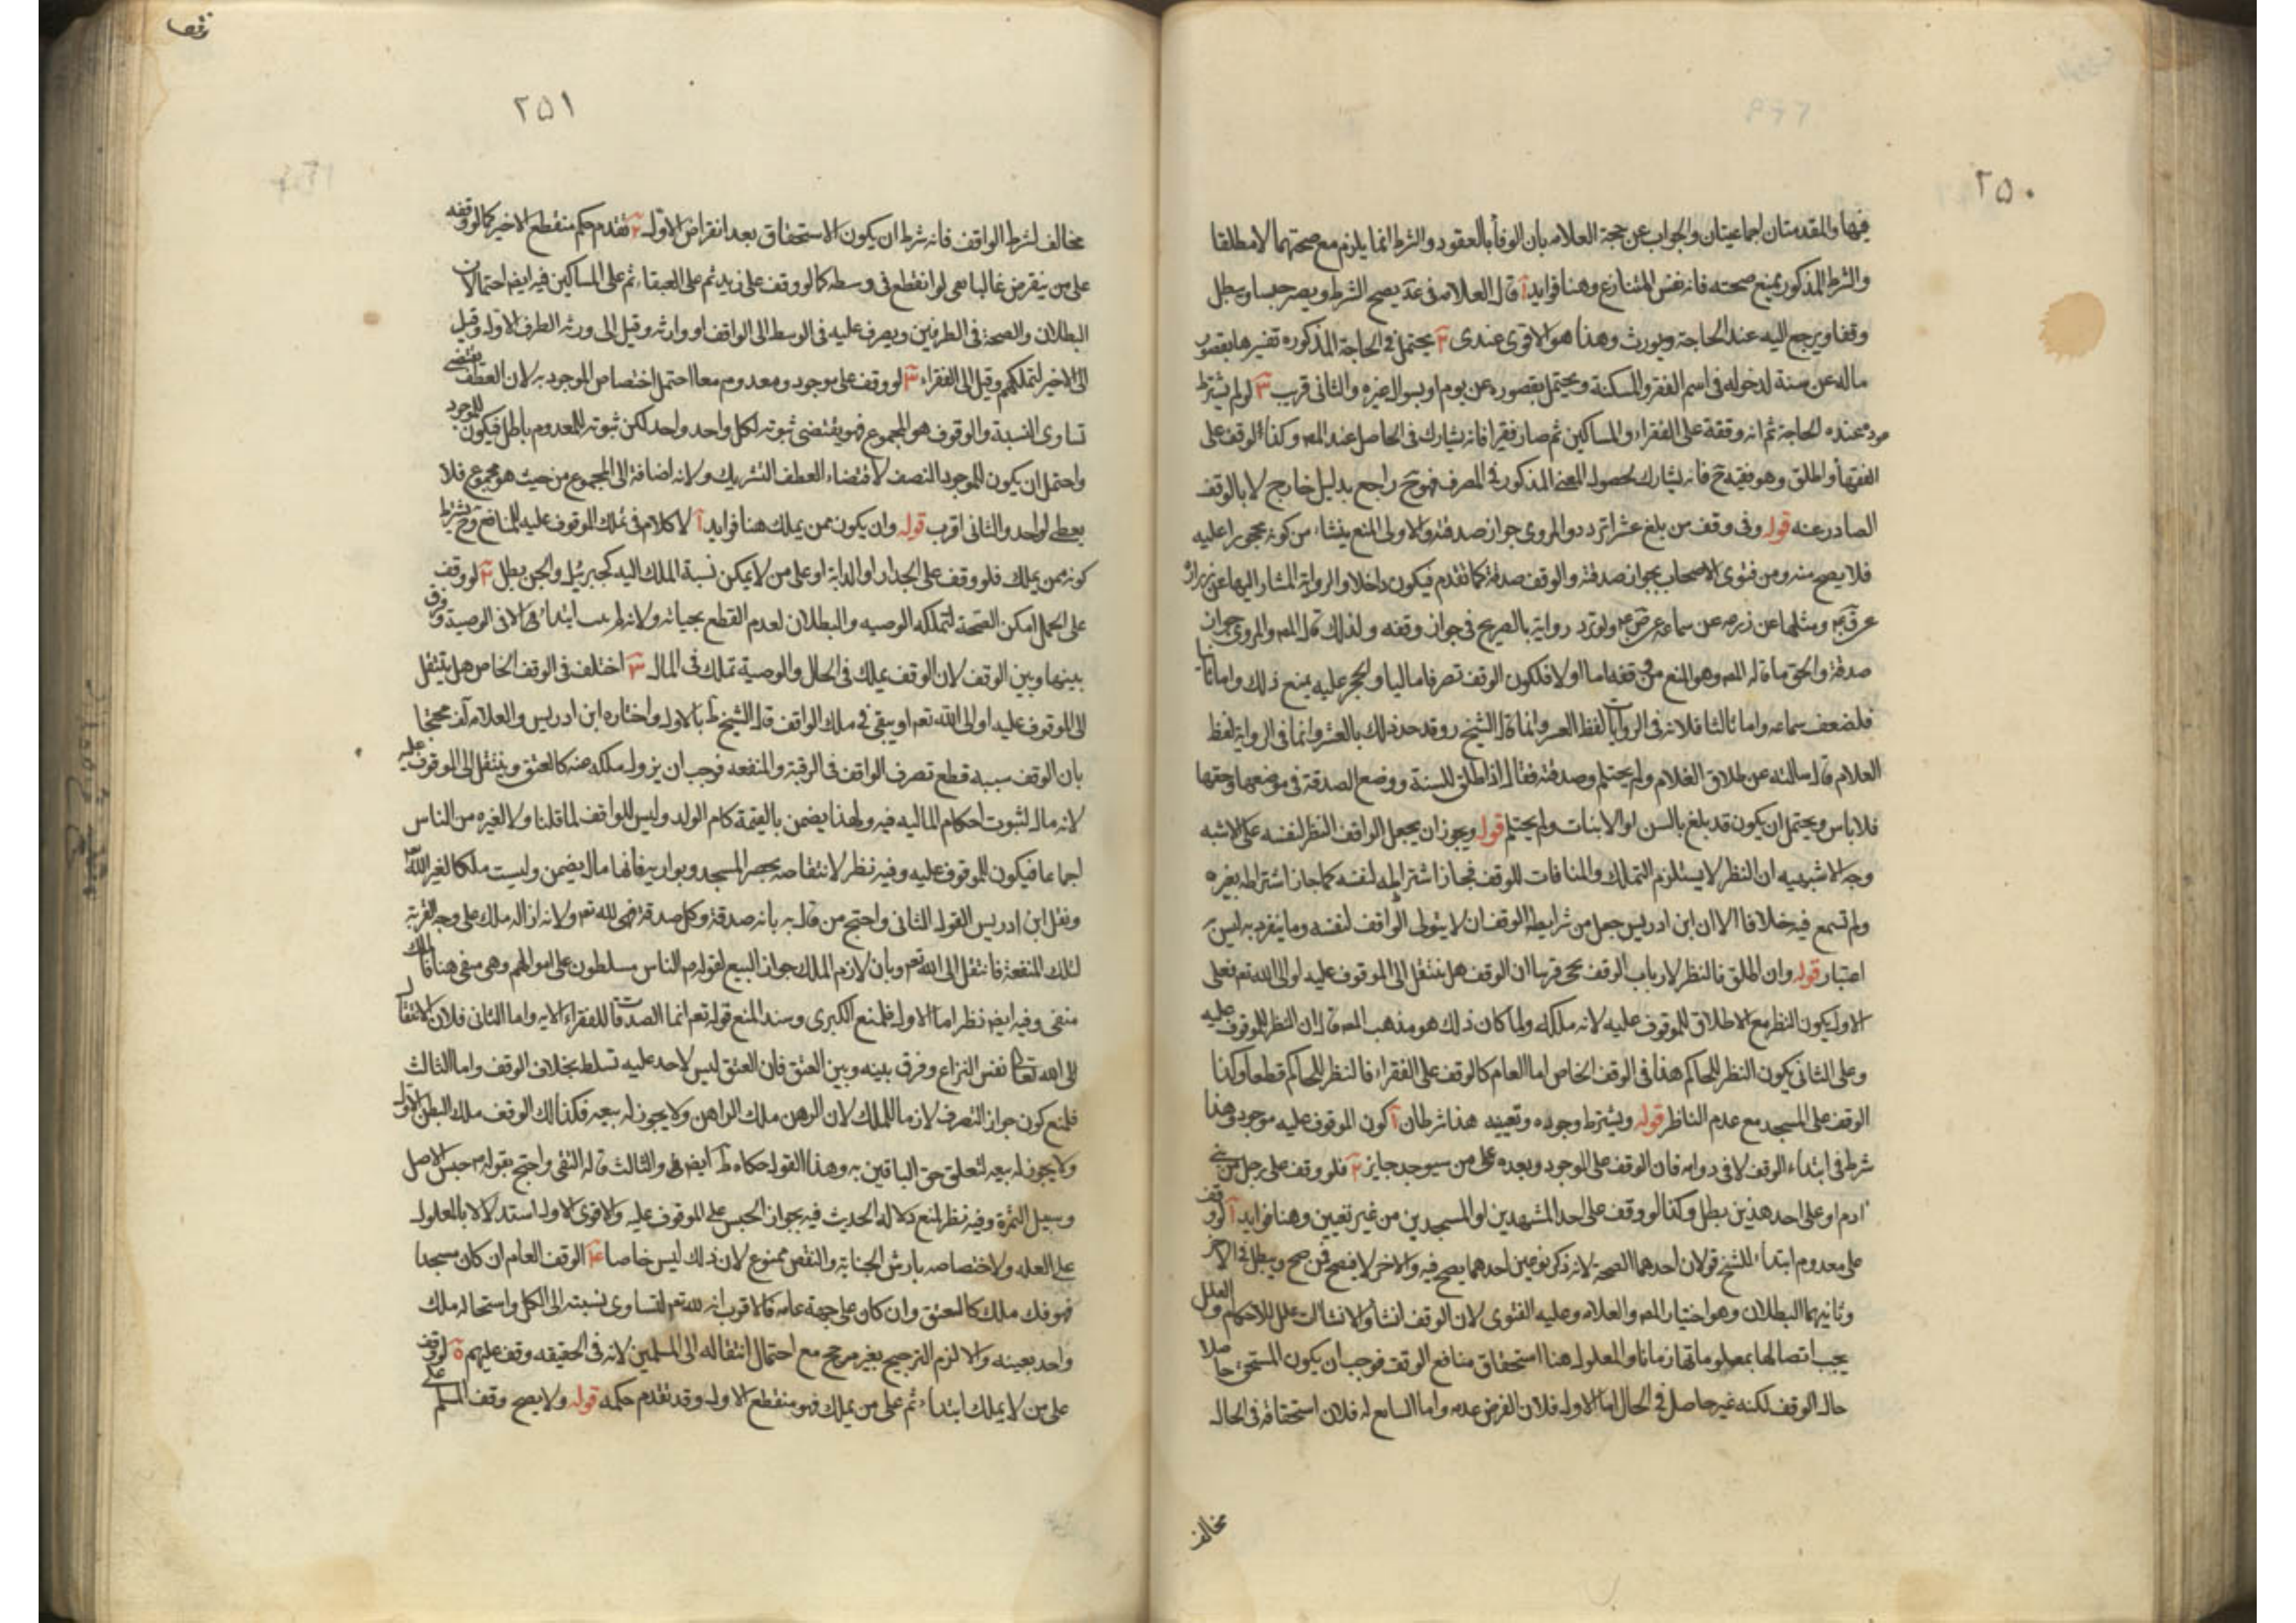 ٢٥٠
فيها والمقدمتان اجماعيتان والجواب عن حجة العلامه بان الوفأ بالعقود والشرط انما يلزم مع صحتهما لا مطلقا
والشرط المذكور يمنع صحته فانه نفس المتنازع وهنا فوايد آ قال العلامه في عد يصح الشرط ويصير حبسا ويبطل
وقفا ويرجع اليه عند الحاجة ويورث وهذا هو الاقوى عندى ٢ يحتمل في الحاجة المذكوره تفسيرها بقصور
ماله عن سنة لدخوله في اسم الفقر والمسكنة ويحتمل بقصوره عن يوم او بسوال غيره والثانى قريب ٣ لو لم يشترط
عوده عند الحاجة ثم انه وقفه على الفقراء والمساكين ثم صار فقيرا فانه يشارك في الحاصل عند المص وكذا لو وقف على
الفقهأ واطلق وهو فقيه ح فانه يشارك لحصول المعنى المذكور في المصرف فهو ح راجع بدليل خارج لا بالوقف
الصادر عنه قوله وفى وقف من بلغ عشرا تردد والمروى جواز صدقته والاولى المنع ينشاء من كونه محجورا عليه
فلا يصح منه ومن فتوى الاصحاب بجواز صدقته والوقف صدقة كما تقدم فيكون داخلا والرواية المشار اليها عن زرارة
عن ومثلها عن زرعه عن سماعه عن ولم ترد رواية بالصريح في جواز وقفه ولذلك قال المص والمروى جواز
صدقة والحق ما قاله المص وهو المنع من وقفه اما اولا فلكون الوقف تصرفا ماليا والحجر عليه يمنع ذلك واما ثانيا
فلضعف سماعه واما ثالثا فلانه في الروايات لفظ العشر وانما قال الشيخ ره وقد حد ذلك بالعشر وانما في الرواية لفظ
الغلام قال سالته عن طلاق الغلام ولم يحتلم وصدقته فقال اذا طلق للسنة ووضع الصدقة في موضعها وحقها
فلا باس ويحتمل ان يكون قد بلغ بالسن او الانبات ولم يحتلم قوله ويجوز ان يجعل الواقف النظر لنفسه على الاشبه
وجه الاشبهيه ان النظر لا يستلزم التملك والمنافات للوقف فجاز اشتراطه لنفسه كما جاز اشتراطه لغيره
ولم نسمع فيه خلافا الا ان ابن ادريس جعل من شرايط الوقف ان لا يتولى الواقف لنفسه وما ينفرد به ليس
اعتبار قوله وان اطلق فالنظر لارباب الوقف تحريرها ان الوقف هل ينتقل الى الموقوف عليه او الى الله تعه فعلى
الاول يكون النظر مع الاطلاق للموقوف عليه لانه ملكه ولما كان ذلك هو مذهب المص قال ان النظر للموقوف عليه
وعلى الثانى يكون النظر للحاكم هذا في الوقف الخاص اما العام كالوقف على الفقراء فالنظر للحاكم قطعا وكذا
الوقف على المسجد مع عدم الناظر قوله ويشترط وجوده وتعيينه هنا شرطان آ كون الموقوف عليه موجود وهذا
شرط في ابتداء الوقف لا في دوامه فان الوقف على الموجود وبعده على من سيوجد جايز ٢ فلو وقف على رجل من بني
ادم او على احد هذين بطل وكذا لو وقف على احد المشهدين او المسجدين من غير تعيين وهنا فوايد آ لو وقف
على معدوم ابتداء للشيخ قولان احدهما الصحة لانه ذكر نوعين احدهما يصح فيه والاخر لا يصح فيه فمن صح ويبطل في الاخر
وثانيهما البطلان وهو اختيار المص والعلامه وعليه الفتوى لان الوقف انشا والانشاات علل للاحكام والعلل
يجب اتصالها بمعلوماتها زمانا والمعلول هنا استحقاق منافع الوقف فوجب ان يكون المستحق حاصلا
حال الوقف لكنه غير حاصل في الحال اما الاول فلان الفرض عدمه واما السامع له فلان استحقاقه في الحال
مخالف
٢٥١
مخالف لشرط الواقف فانه شرط ان يكون الاستحقاق بعد انقراض الاول ٢ تقدم حكم منقطع الاخير كما لو وقفه
على من ينقرض غالبا بقى لو انقطع في وسطه كما لو وقف على زيد ثم على العبقاء ثم على المساكين فيه ايضا احتمالان
البطلان والصحة في الطرفين ويصرف عليه في الوسط الى الواقف او وارثه وقيل الى ورثة الطرف الاول وقيل
الى الاخير لتملكهم وقيل الى الفقراء ٣ لو وقف على موجود ومعدوم معا احتمل اختصاص الموجود به لان العطف يقتضى
تساوى النسبة والوقوف هو المجموع فهو يقتضى ثبوته لكل واحد واحد لكن ثبوته للمعدوم باطل فيكون للموجود
واحتمل ان يكون للموجود النصف لاقتضاء العطف التشريك ولانه اضافة الى المجموع من حيث هو مجموع فلا
يعطى لواحد والثانى اقرب قوله وان يكون ممن يملك هنا فوايد آ لا كلام في تملك الموقوف عليه للمنافع وح يشترط
كونه ممن يملك فلو وقف على الجدار او الدابة او على من لا يمكن نسبة الملك اليه كجبرئيل والجن بطل ٢ لو وقف
على الحمل امكن الصحة لتملكه الوصيه والبطلان لعدم القطع بحياته ابتداء الا في الوصية وفرق
بينها وبين الوقف لان الوقف يملك في الحال والوصية تملك في المال ٣ اختلف في الوقف الخاص هل ينتقل
الى الموقوف عليه او الى الله تعه او يبقى في ملك الواقف قال الشيخ ط بالاول واختاره ابن ادريس والعلامه محتجا
بان الوقف سببه قطع تصرف الواقف في الرقبة والمنفعه فوجب ان يزول ملكه عنه كالعتق وينتقل الى الموقوف عليه
لانه مال لثبوت احكام الماليه فيه ولهذا يضمن بالقيمة كام الولد وليس للواقف لما قلنا ولا لغيره من الناس
اجماعا فيكون للموقوف عليه وفيه نظر لانتقاضه بحصر المسجد وبواريه فانها مال يضمن وليست ملكا لغير الله
ونقل ابن ادريس القول الثانى واحتج من قال به بانه صدقة وكل صدقة فهى لله تعه ولانه ازاله ملك على وجه القربة
لتلك المنفعة فانتقل الى الله تعه وبان لازم الملك جواز البيع لقوله م الناس مسلطون على اموالهم وهى منفى هنا فالملك
منفى وفيه ايضا نظر اما الاول فلمنع الكبرى وسند المنع قوله تعه انما الصدقات للفقراء الايه واما الثانى فلان الانتقال
الى الله تعالى نفس النزاع وفرق بينه وبين العتق فان العتق ليس لاحد عليه تسلط بخلاف الوقف واما الثالث
فلمنع كون جواز التصرف لازما للملك لان الرهن ملك الراهن ولا يجوز له بيعه فكذلك الوقف ملك البطن الاول
ولا يجوز له بيعه لتعلق حق الباقين به وهذا القول حكاه ط ايضا والثالث قاله التقى واحتج بقوله م حبس الاصل
وسبل الثمرة وفيه نظر لمنع دلاله الحديث فيه بجواز الحبس على الموقوف عليه والاقوى الاول استدلالا بالمعلول
على العله ولاختصاصه بارش الجناية والنقض ممنوع لان ذلك ليس خاصا ٤ الوقف العام ان كان مسجدا
فهو فك ملك كالعتق وان كان على جهة عامه فالاقرب انه لله تعه لتساوى نسبته الى الكل واستحاله ملك
واحد بعينه والا لزم الترجيح بغير مرجح مع احتمال انتقاله الى المسلمين لانه في الحقيقه وقف عليهم ٥ لو وقف
على من لا يملك ابتداء ثم على من يملك فهو منقطع الاول وقد تقدم حكمه قوله ولا يصح وقف المسلم على